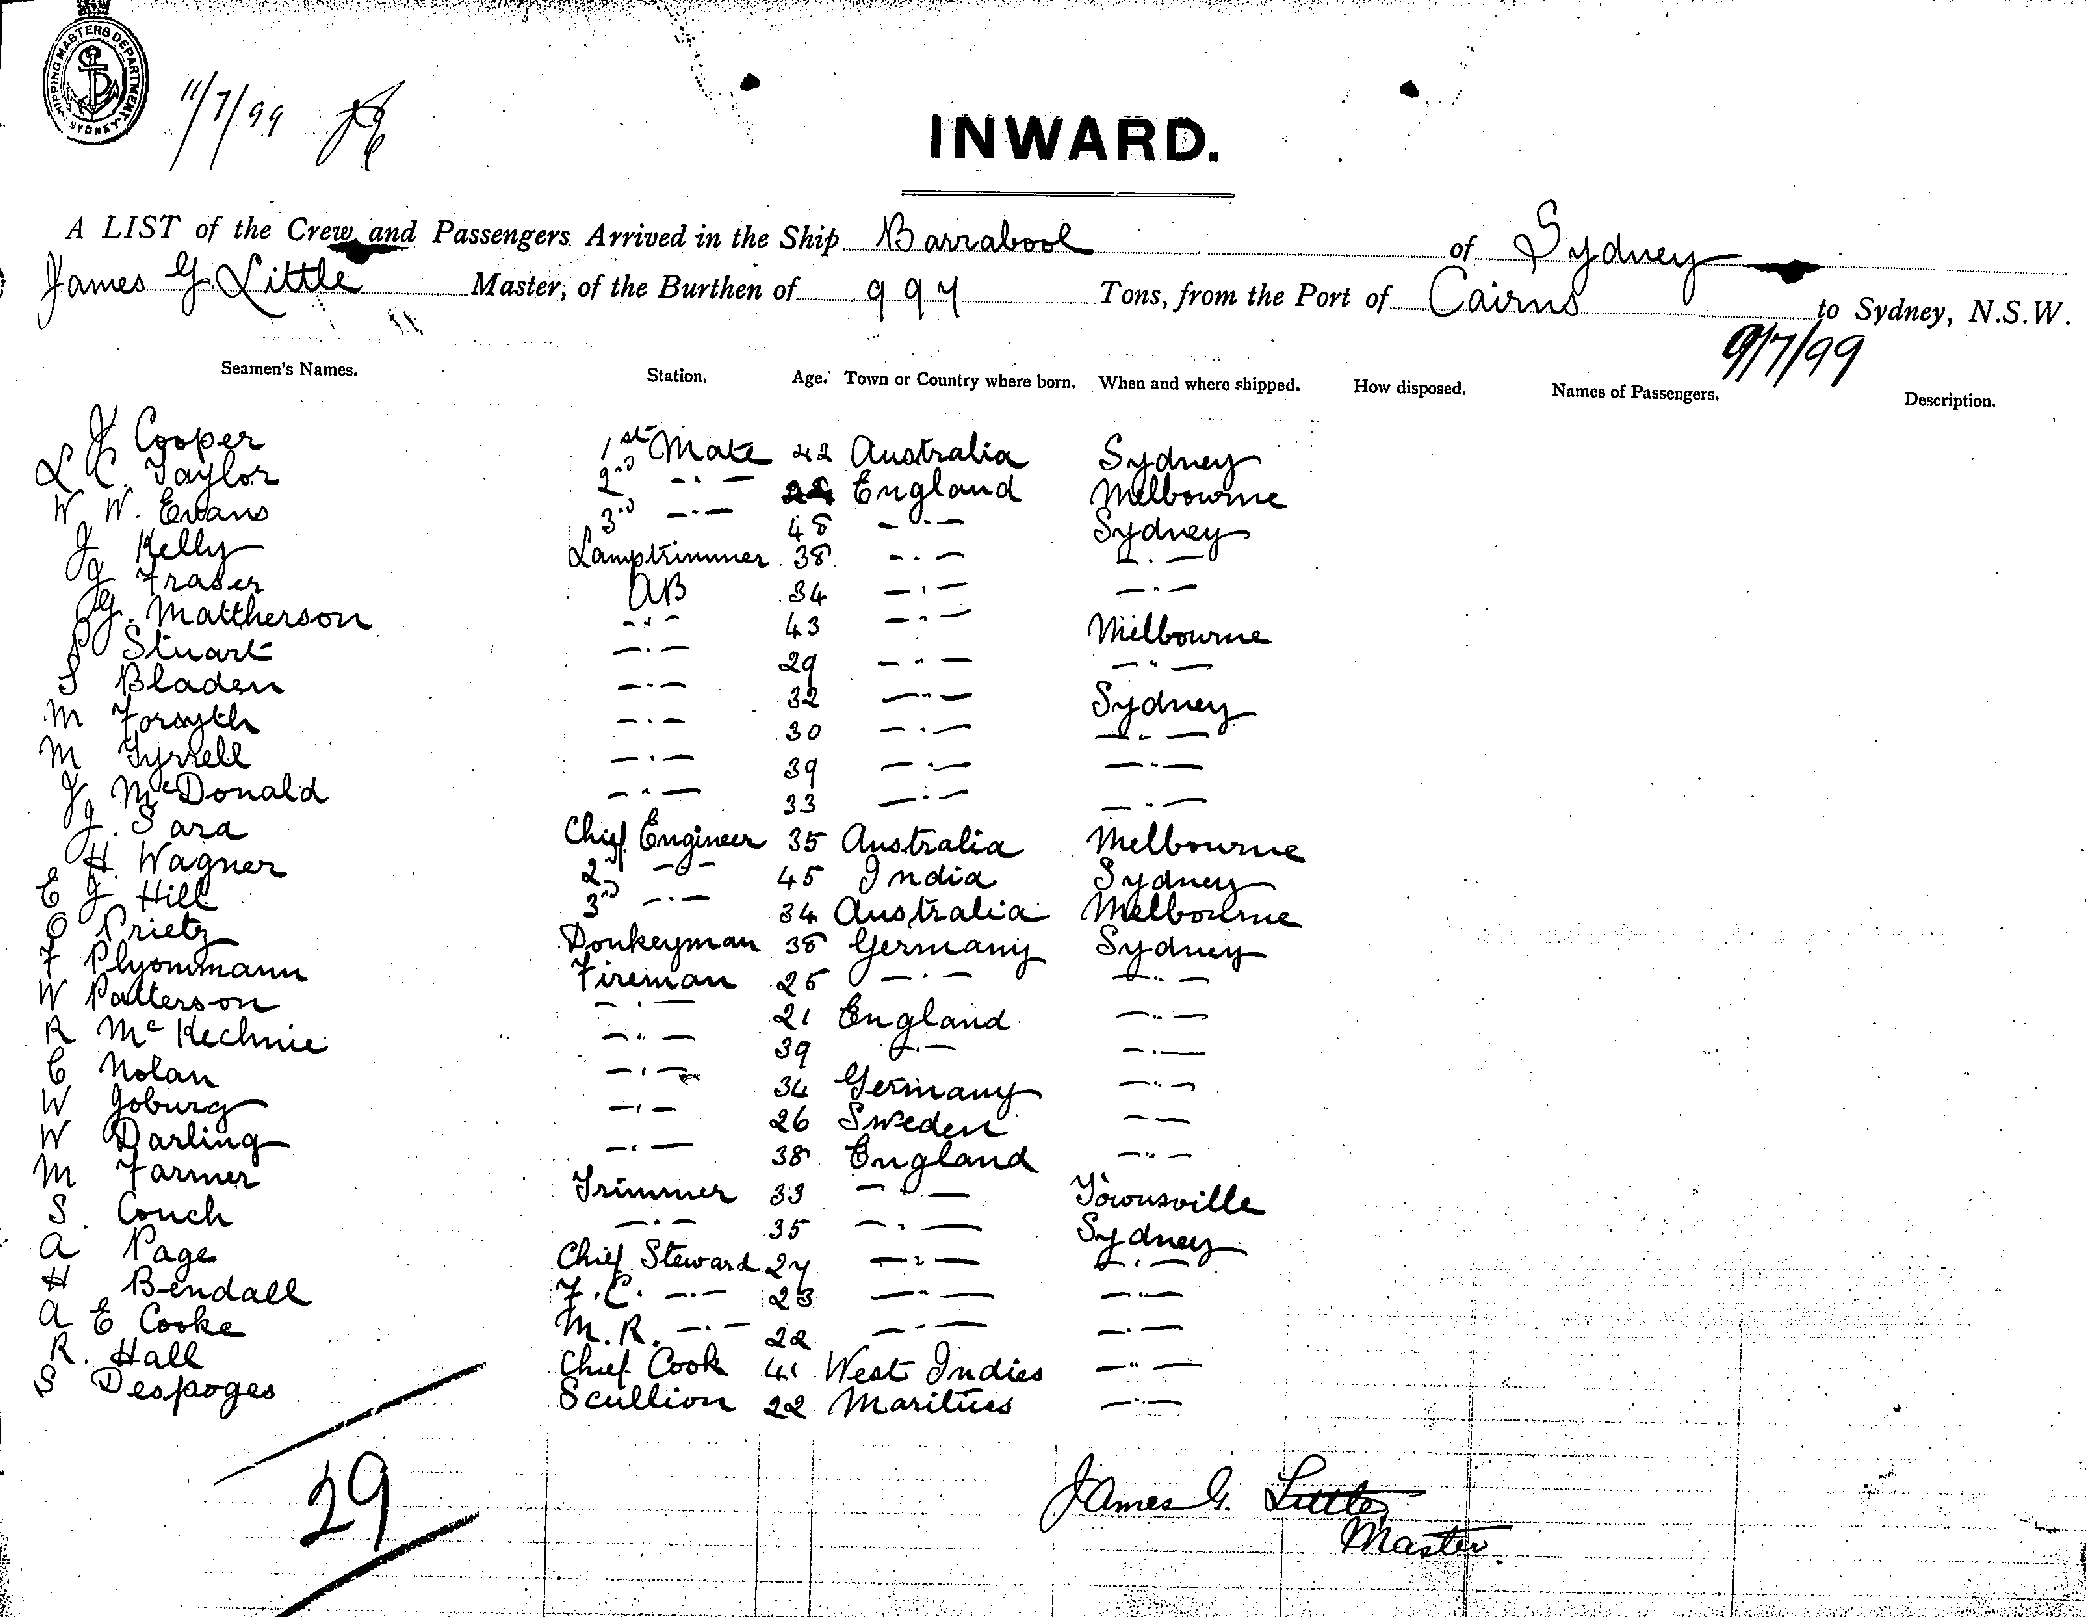 SHIPPING MASTERS DEPARTMENT SYDNEY
11/7/99
INWARD.
A LIST of the Crew and Passengers Arrived in the Ship Barrabool of Sydney
James G Little Master, of the Burthen of 997 Tons, from the Port of Cairns to Sydney, N.S.W.
9/7/99
Seamen's Names. Station. Age. Town or Country where born. When and where shipped. How disposed. Names of Passengers. Description.
J Cooper 1st Mate 42 Australia Sydney
L C. Taylor 2nd —"— England Melbourne
W W. Evans 3rd —"— 48 —"— Sydney
J Kelly Lamptrimmer 38 —"— —"—
J Fraser AB 34 —"— —"—
G. Mattherson —"— 43 —"— Melbourne
P Stuart —"— 29 —"— —"—
S Bladen —"— 32 —"— Sydney
M Forsyth —"— 30 —"— —"—
M Tyrrell —"— 39 —"— —"—
J McDonald —"— 33 —"— —"—
J. Sara Chief Engineer 35 Australia Melbourne
H. Wagner 2nd —"— 45 India Sydney
E J Hill 3rd —"— 34 Australia Melbourne
O Prietz Donkeyman 38 Germany Sydney
F Plyommann Fireman 25 —"— —"—
W Patterson —"— 21 England —"—
R McKechnie —"— 39 —"— —"—
C Nolan —"— 34 Germany —"—
W Joburg —"— 26 Sweden —"—
W Darling —"— 38 England —"—
M Farmer Trimmer 33 —"— Townsville
S. Couch —"— 35 —"— Sydney
A Page Chief Steward 27 —"— —"—
H Bendall F.C. —"— 23 —"— —"—
A E Cooke M.R. —"— 22 —"— —"—
R. Hall Chief Cook 41 West Indies —"—
S Despoges Scullion 22 Maritius —"—
29
James G. Little
Master